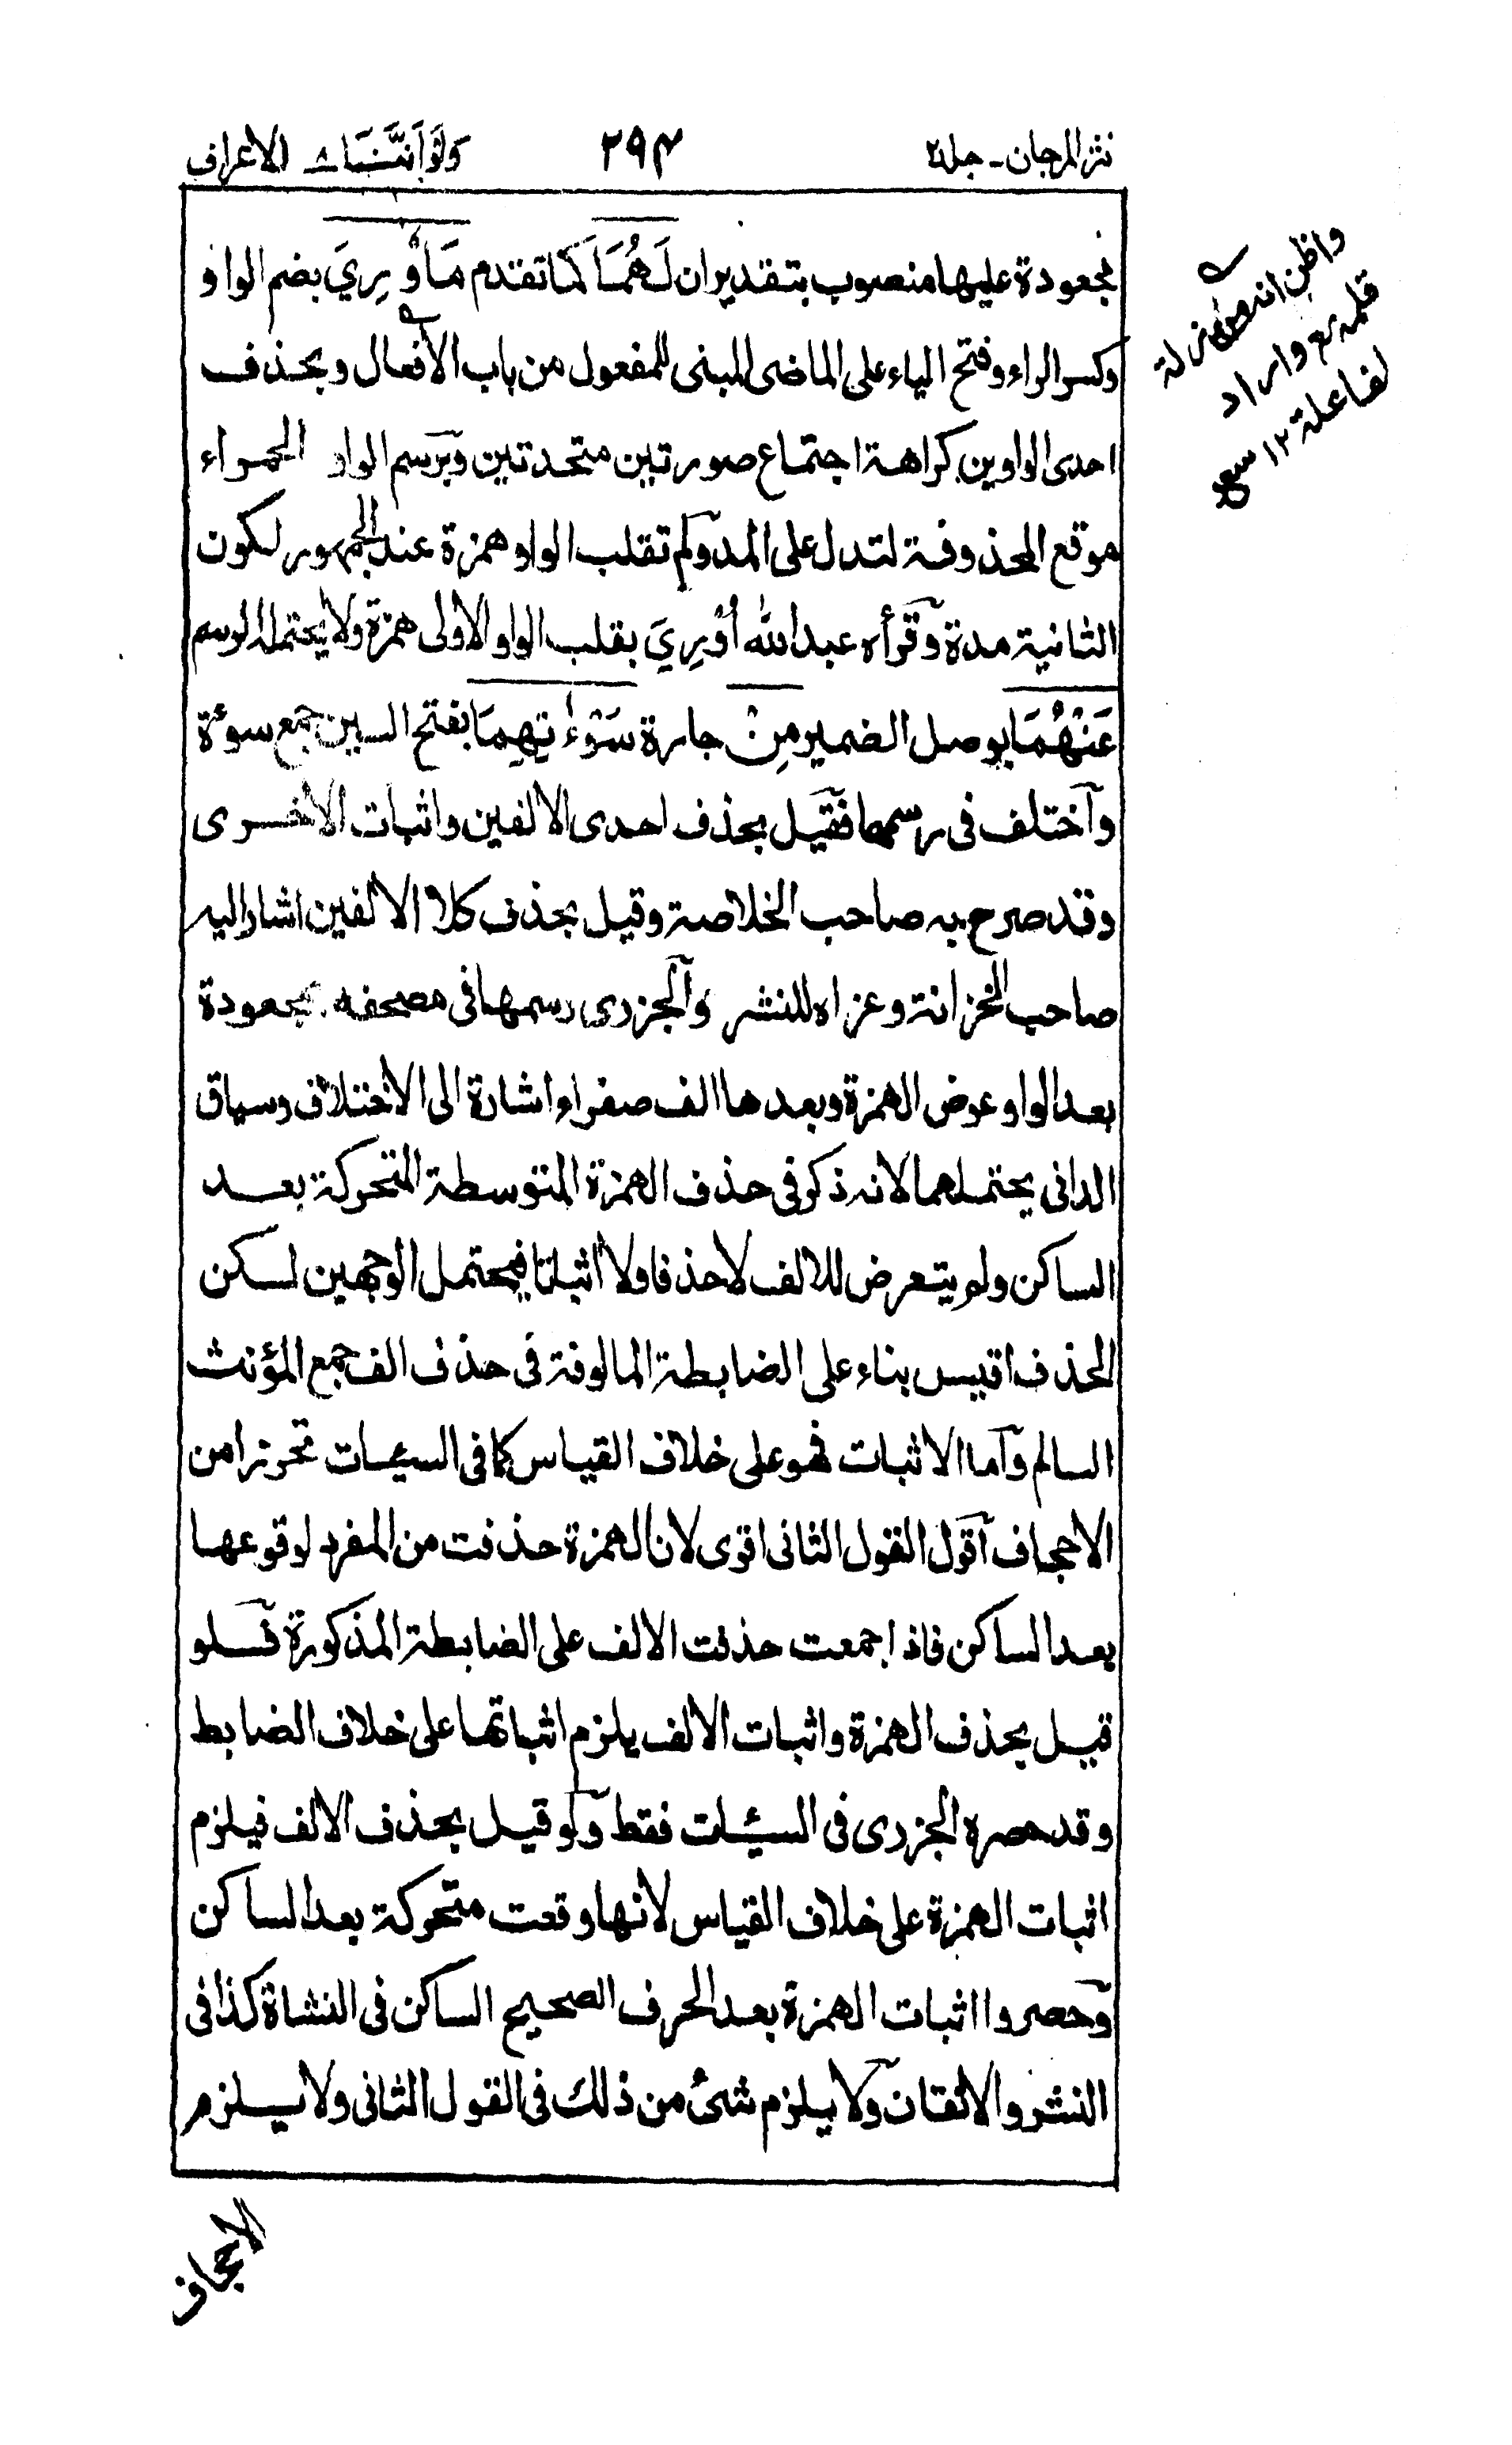 نثر المرجان - جلد ٢ ٢٩٤ ولواننا ٨ الاعراف
بجعودة عليها منصوب بتقدير ان لَهُمَا كما تقدم مَا وُرِيَ بضم الواو
وكسر الراء وفتح الياء على الماضى المبنى للمفعول من باب الأفعال وبحذف
احدى الواوين كراهة اجتماع صورتين متحدتين وبرسم الواو الحمراء
موقع المحذوفة لتدل على المد ولم تقلب الواو همزة عند الجمهور لكون
الثانية مدة وقرأه عبد الله أُوْرِيَ بقلب الواو الاولى همزة ولا يحتمله الرسم
عَنْهُمَا بوصل الضمير مِنْ جارة سَوْءٰتِهِمَا بفتح السين جمع سوءة
واختلف فى رسمها فقيل بحذف احدى الالفين واثبات الاخرى
وقد صرح به صاحب الخلاصة وقيل بحذف كلا الالفين اشار اليه
صاحب الخزانة وعزاه للنشر والجزرى رسمها فى مصحفه بجعودة
بعد الواو عوض الهمزة وبعدها الف صفراء اشارة الى الاختلاف وسياق
الدانى يحتملهما لانه ذكر فى حذف الهمزة المتوسطة المتحركة بعد
الساكن ولم يتعرض للالف لا حذفا ولا اثباتا فيحتمل الوجهين لكن
الحذف اقيس بناء على الضابطة المالوفة فى حذف الف جمع المؤنث
السالم واما الاثبات فهو على خلاف القياس كما فى السيئات تحرزا من
الاجحاف اقول القول الثانى اقوى لان الهمزة حذفت من المفرد لوقوعها
بعد الساكن فاذا جمعت حذفت الالف على الضابطة المذكورة فلو
قيل بحذف الهمزة واثبات الالف يلزم اثباتها على خلاف الضابط
وقد حصره الجزرى فى السيئات فقط ولو قيل بحذف الالف فيلزم
اثبات الهمزة على خلاف القياس لانها وقعت متحركة بعد الساكن
وحصروا اثبات الهمزة بعد الحرف الصحيح الساكن فى النشاة كذا فى
النشر والاتقان ولا يلزم شئ من ذلك فى القول الثانى ولا يلزم
الاجحاف
واظن انه من زلة
قلمه واراد
لمفاعلة ١٢